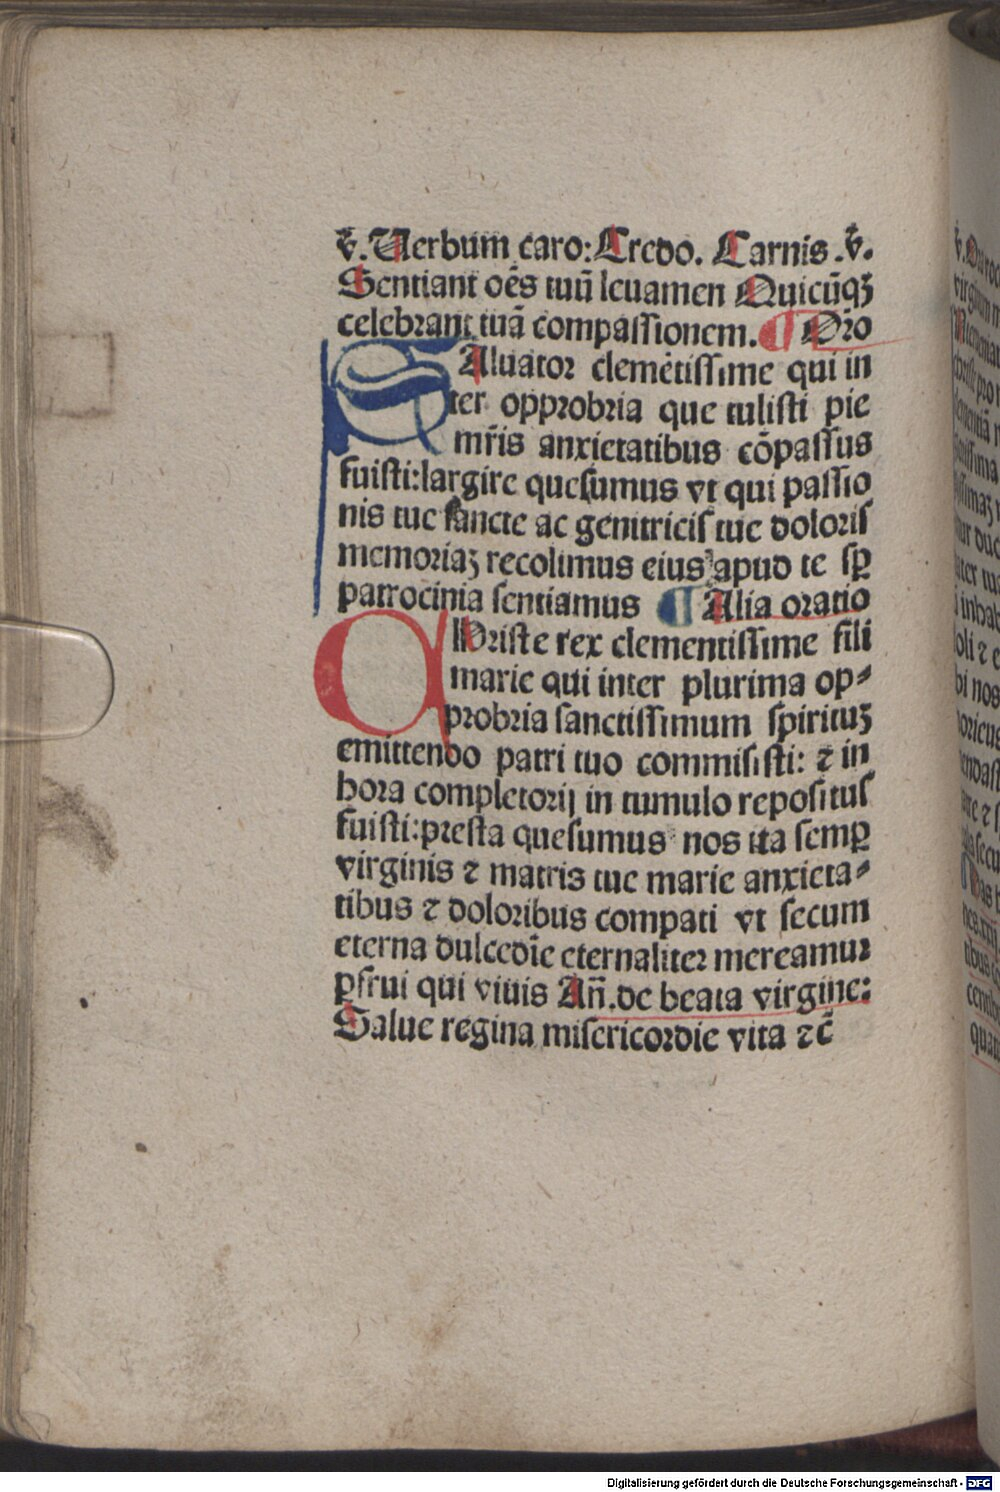 v̄. Uerbum caro: Credo. Carnis. v̄.
Sentiant oēs tuū leuamen Quicūqꝫ
celebrant tuā compaſſionem. ¶ Oŕo
SAluatoꝛ clemētiſſime qui in
ter oppꝛobꝛia que tuliſti pie
mr̄is anxietatibus cōpaſſus
fuiſti: largire queſumus vt qui paſſio
nis tue ſancte ac genitriciſ tue doloꝛiſ
memoꝛiaꝫ recolimus eius apud te ſꝑ
patrocinia ſentiamus ¶ Alia oꝛatio
O Chꝛiſte rex clementiſſime fili
marie qui inter plurima op⸗
pꝛobꝛia ſanctiſſimum ſpirituꝫ
emittendo patri tuo commiſiſti: ⁊ in
hoꝛa completoꝛij in tumulo repoſituſ
fuiſti: pꝛeſta queſumus nos ita ſemꝑ
virginis ⁊ matris tue marie anxieta⸗
tibus ⁊ doloꝛibus compati vt ſecum
eterna dulcedīe eternaliteꝛ mereamuꝛ
ꝑfrui qui viuis An̄. de beata virgine:
Salue regina miſericoꝛdie vita ⁊c̄
Digitalisierung gefördert durch die Deutsche Forschungsgemeinschaft - DFG